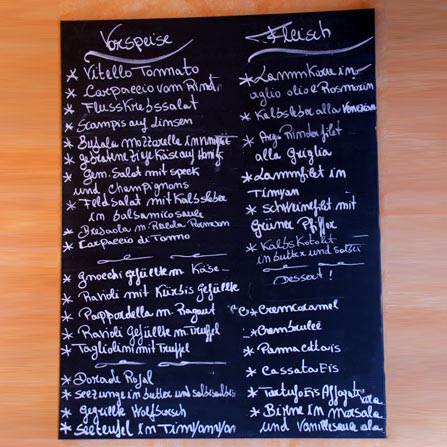 Vorspeise
* Vitello Tonnato
* Carpaccio vom Rind
* Flusskrebssalat
* Scampis auf Linsen
* Bufala mozzarella
* gebratene Ziegenkäse auf Honig
* Gem. Salat mit speck
und Champignons
* Feldsalat mit Kalbsleber
in balsamicosauce
* Bresaola m. Rucola Parmesan
* Carpaccio di Tonno
* gnocchi gefüllte m. Käse
* Ravioli mit Kürbis gefüllte
* Pappardella m. Ragout
* Ravioli Gefüllte m. Truffel
* Tagliolini mit Truffel
* Dorade Rojal
* Seezunge in butter und salbei
* Gegrillte Wolfbarsch
* Seeteufel in Timyan
Fleisch
* Lammkrone in
aglio olio e Rosmarin
* Kalbsleber alla Veneziana
* Arg. Rinderfilet
alla Griglia
* Lammfilet in
Timyan
* Schweinefilet mit
Grüner Pfeffer
* Kalbs Kotolett
in butter und salbei
Dessert!
* Cremcaramel
* Crembruleé
* Panna Cotta
* Cassata Eis
* Tartufo Eis Affogato
* Birne in marsala
und Vanillesauce